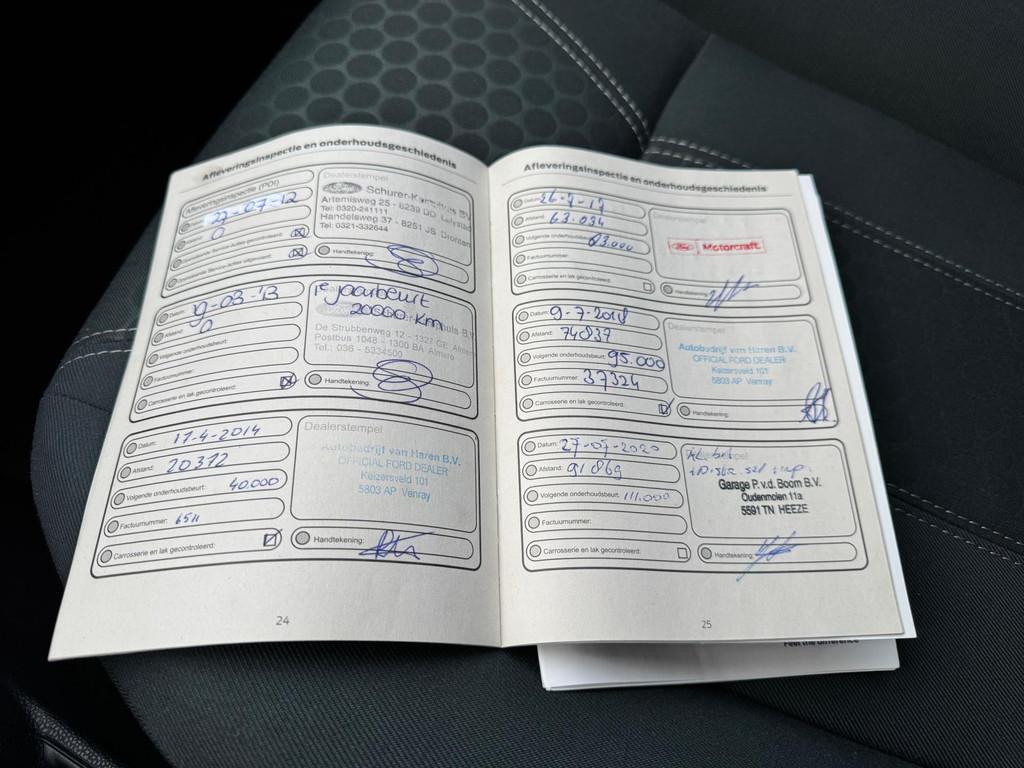 Afleveringsinspectie en onderhoudsgeschiedenis
Afleveringsinspectie (PDI)
27-07-12
0
Dealerstempel
Ford Schurer-
Artemisweg 25 - 8239 DD Lelystad
Tel: 0320-241111
Handelsweg 37 - 8251 JS Dronten
Tel: 0321-332644
Handtekening:
Datum: 19-03-'13
Afstand: 0
Volgende onderhoudsbeurt:
Factuurnummer:
Carrosserie en lak gecontroleerd:
1e jaarbeurt
20000 km
De Strubbenweg 12 - 1327 GE Almere
Postbus 1048 - 1300 BA Almere
Tel.: 036 - 5334500
Handtekening:
Datum: 17-4-2014
Afstand: 20372
Volgende onderhoudsbeurt: 40.000
Factuurnummer: 6511
Carrosserie en lak gecontroleerd:
Dealerstempel
Autobedrijf van Haren B.V.
OFFICIAL FORD DEALER
Keizersveld 101
5803 AP Venray
Handtekening:
24
Afleveringsinspectie en onderhoudsgeschiedenis
Datum: 26-7-17
Afstand: 63.034
Volgende onderhoudsbeurt: 83.000
Factuurnummer:
Carrosserie en lak gecontroleerd:
Dealerstempel
Ford Motorcraft
Handtekening:
Datum: 9-7-2018
Afstand: 74837
Volgende onderhoudsbeurt: 95.000
Factuurnummer: 37324
Carrosserie en lak gecontroleerd:
Dealerstempel
Autobedrijf van Haren B.V.
OFFICIAL FORD DEALER
Keizersveld 101
5803 AP Venray
Handtekening:
Datum: 27-07-2020
Afstand: 91869
Volgende onderhoudsbeurt: 111.000
Factuurnummer:
Carrosserie en lak gecontroleerd:
Garage P.v.d. Boom B.V.
Oudenmolen 11a
5591 TN HEEZE
Handtekening:
25
Feel the difference